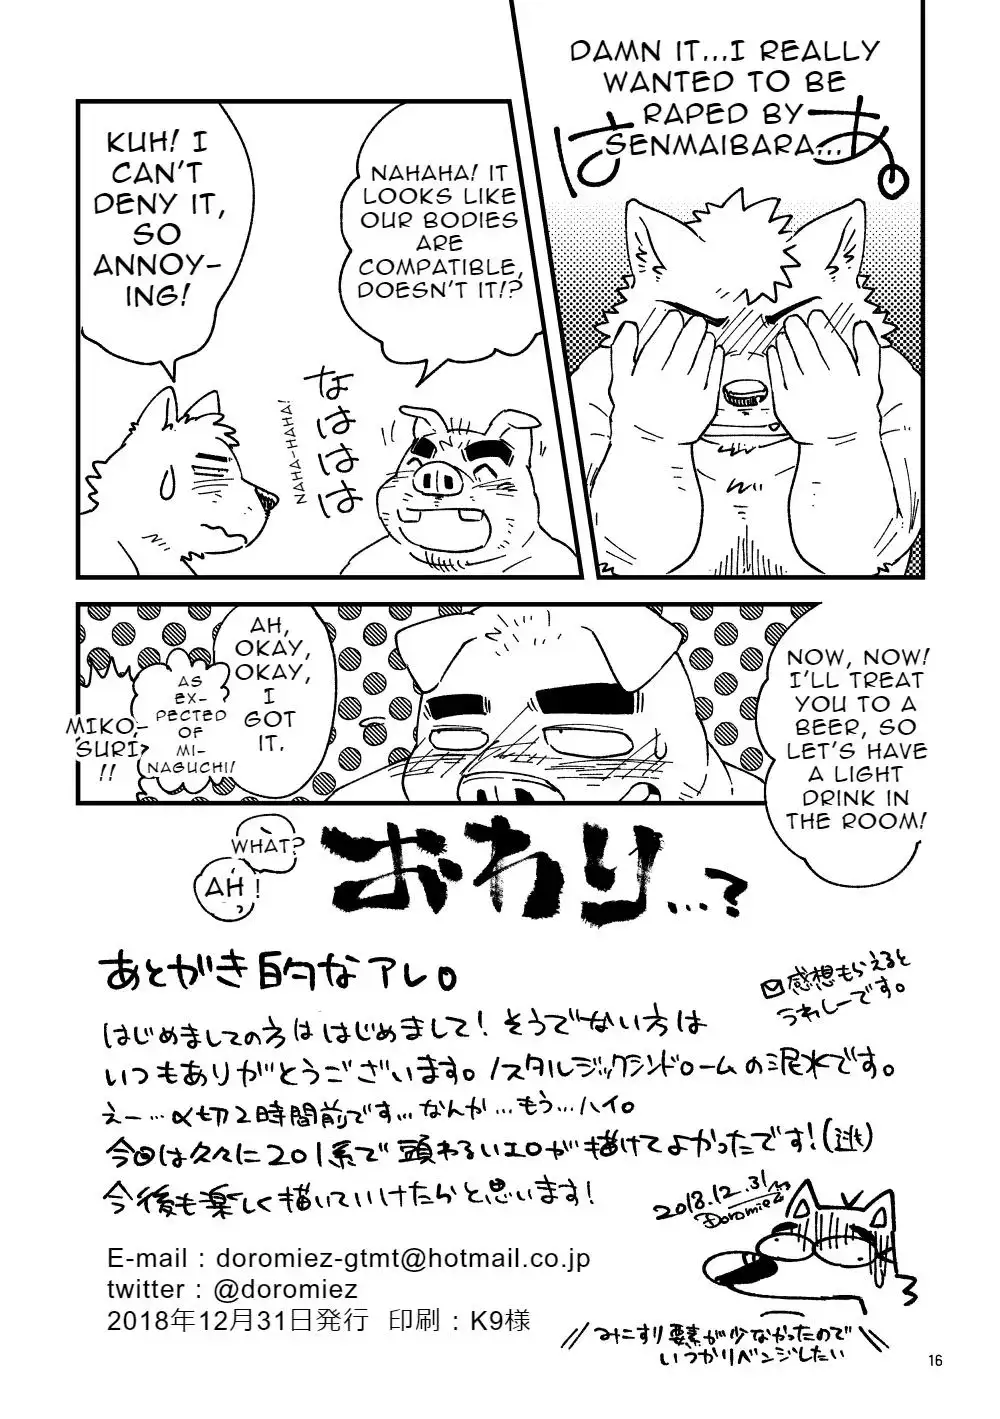 DAMN IT...I REALLY
WANTED TO BE
RAPED BY
SENMAIBARA...
はあ。
NAHAHA! IT
LOOKS LIKE
OUR BODIES
ARE
COMPATIBLE,
DOESN'T IT!?
なははは
NAHA-HAHA!
KUH! I
CAN'T
DENY IT,
SO
ANNOY-
ING!
NOW, NOW!
I'LL TREAT
YOU TO A
BEER, SO
LET'S HAVE
A LIGHT
DRINK IN
THE ROOM!
AH,
OKAY,
OKAY,
I
GOT
IT.
AS
EX-
PECTED
OF
MI-
NAGUCHI!
MIKO-
SURI?
!!
WHAT?
AH!
おわり...?
あとがき的なアレ。
感想もらえると
うれしーです。
はじめましての方ははじめまして!そうでない方は
いつもありがとうございます。ノスタルジックシンドロームの泥水です。
えー…〆切2時間前です…なんか…もう…ハイ。
今回は久々に201系で頭わるいエロが描けてよかったです!(逃)
今後も楽しく描いていけたらと思います!
2018.12.31
Doromiez
E-mail：doromiez-gtmt@hotmail.co.jp
twitter：@doromiez
2018年12月31日発行 印刷：K9様
みこすり要素が少なかったので
いつかリベンジしたい
16